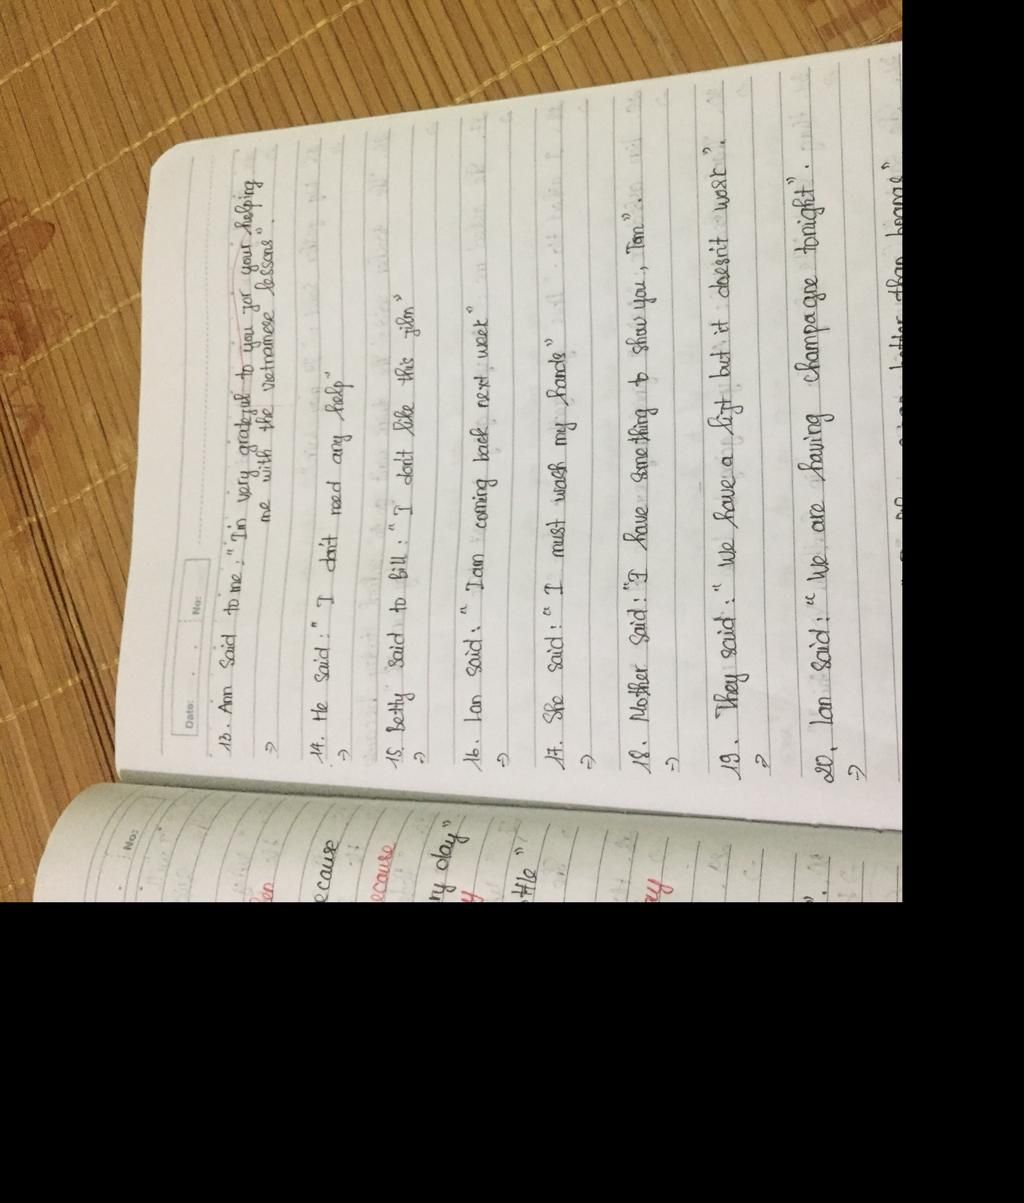 No:
ecause
ecause
ry day"
y
ay
Date:
No:
13. Ann said to me: "I'm very grateful to you for your helping
me with the vietnamese lessons".
=>
14. He said: " I don't need any help"
=>
15. Betty said to Bill: "I don't like this film"
=>
16. Lan said: " I am coming back next week"
=>
17. She said: " I must wash my hands"
=>
18. Mother said: "I have something to show you, Tom".
=>
19. They said: " We have a lift but it doesn't work".
=>
20. Lan said: " We are having champagne tonight".
=>
better than